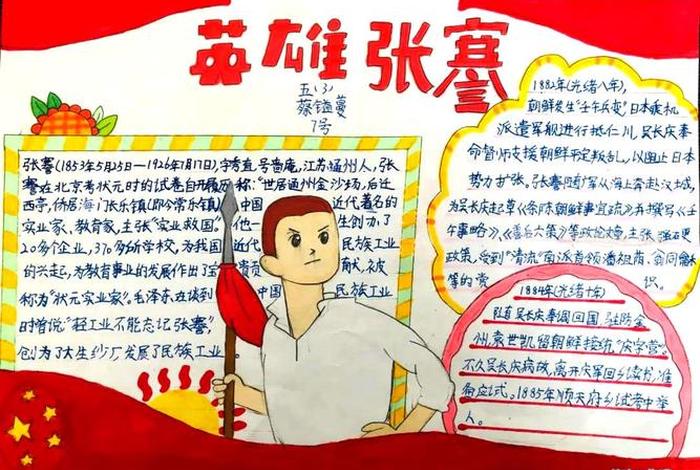 英雄张謇
五(3)
蔡镒蔓
7号
张謇(1853年5月25日—1926年7月17日),字季直,号啬庵,江苏通州人,张
謇在北京考状元时的试卷自开履历称:"世居通州金沙场,后迁
西亭,侨居海门长乐镇(即今常乐镇)中国近代著名的
实业家、教育家,主张"实业救国"。他一生创办了
20多个企业,370多所学校,为我国近代民族工业
的兴起,为教育事业的发展作出了宝贵贡献,被
称为"状元实业家",毛泽东在谈到中国民族工业
时曾说:"轻工业不能忘记张謇"
创办了大生纱厂发展了民族工业
1882年(光绪八年),
朝鲜发生"壬午兵变",日本乘机
派遣军舰进行抵仁川,吴长庆奉
命督师支援朝鲜平定叛乱,以阻止日本
势力扩张。张謇随庆军从海上奔赴汉城,
为吴长庆起草《条陈朝鲜事宜疏》并撰写《壬
午事略》、《善后六策》等政论文章,主张强硬
政策,受到"清流"南派首领潘祖荫、翁同龢
等的赏识。
1884年(光绪十年)
随吴长庆奉调回国,驻防金
州,袁世凯留朝鲜接统"庆字营"。
不久吴长庆病故,离开庆军回乡读书,准
备应试。1885年顺天府乡试考中举
人。